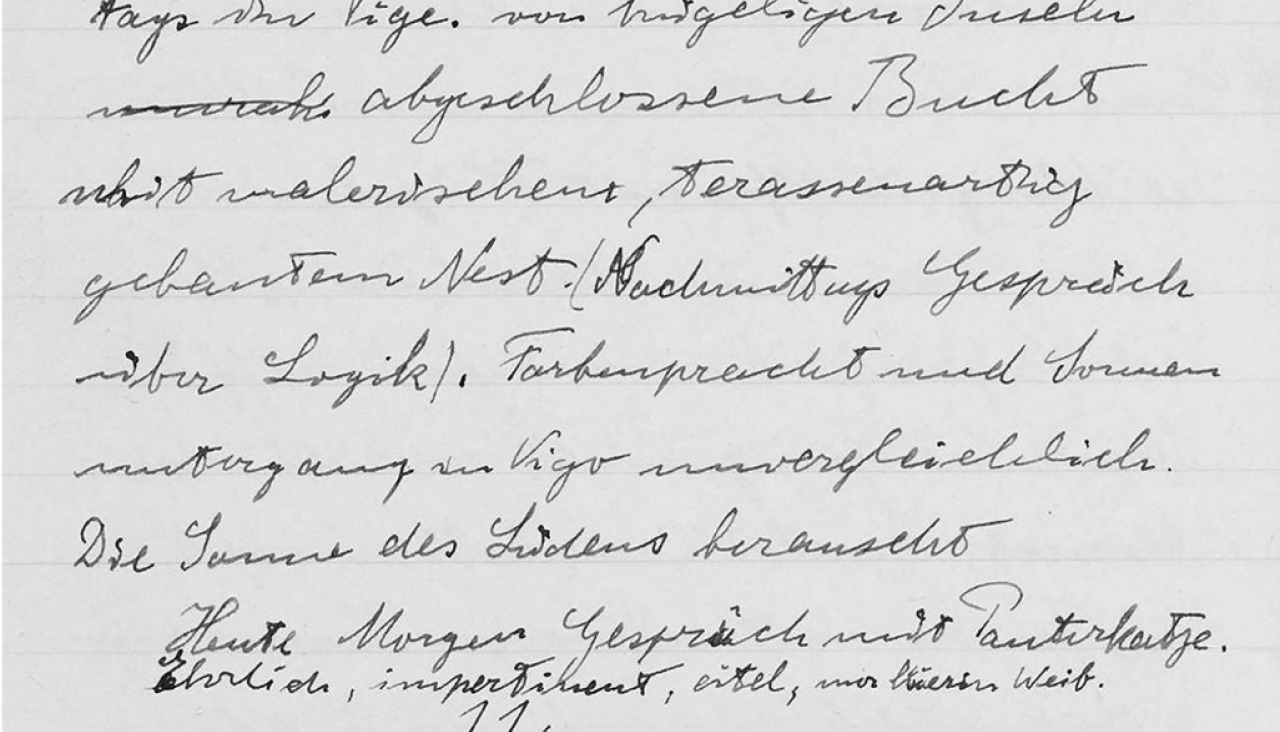 tags in Vigo. von hügeligen Inseln
abgeschlossene Bucht
mit malerischem, terassenartig
gebautem Nest. (Nachmittags Gespräch
über Logik). Farbenpracht und Sonnen
untergang in Vigo unvergleichlich.
Die Sonne des Südens berauscht
Heute Morgen Gespräch mit Panterkatze.
Ehrlich, impertinent, eitel, Weib.
11.